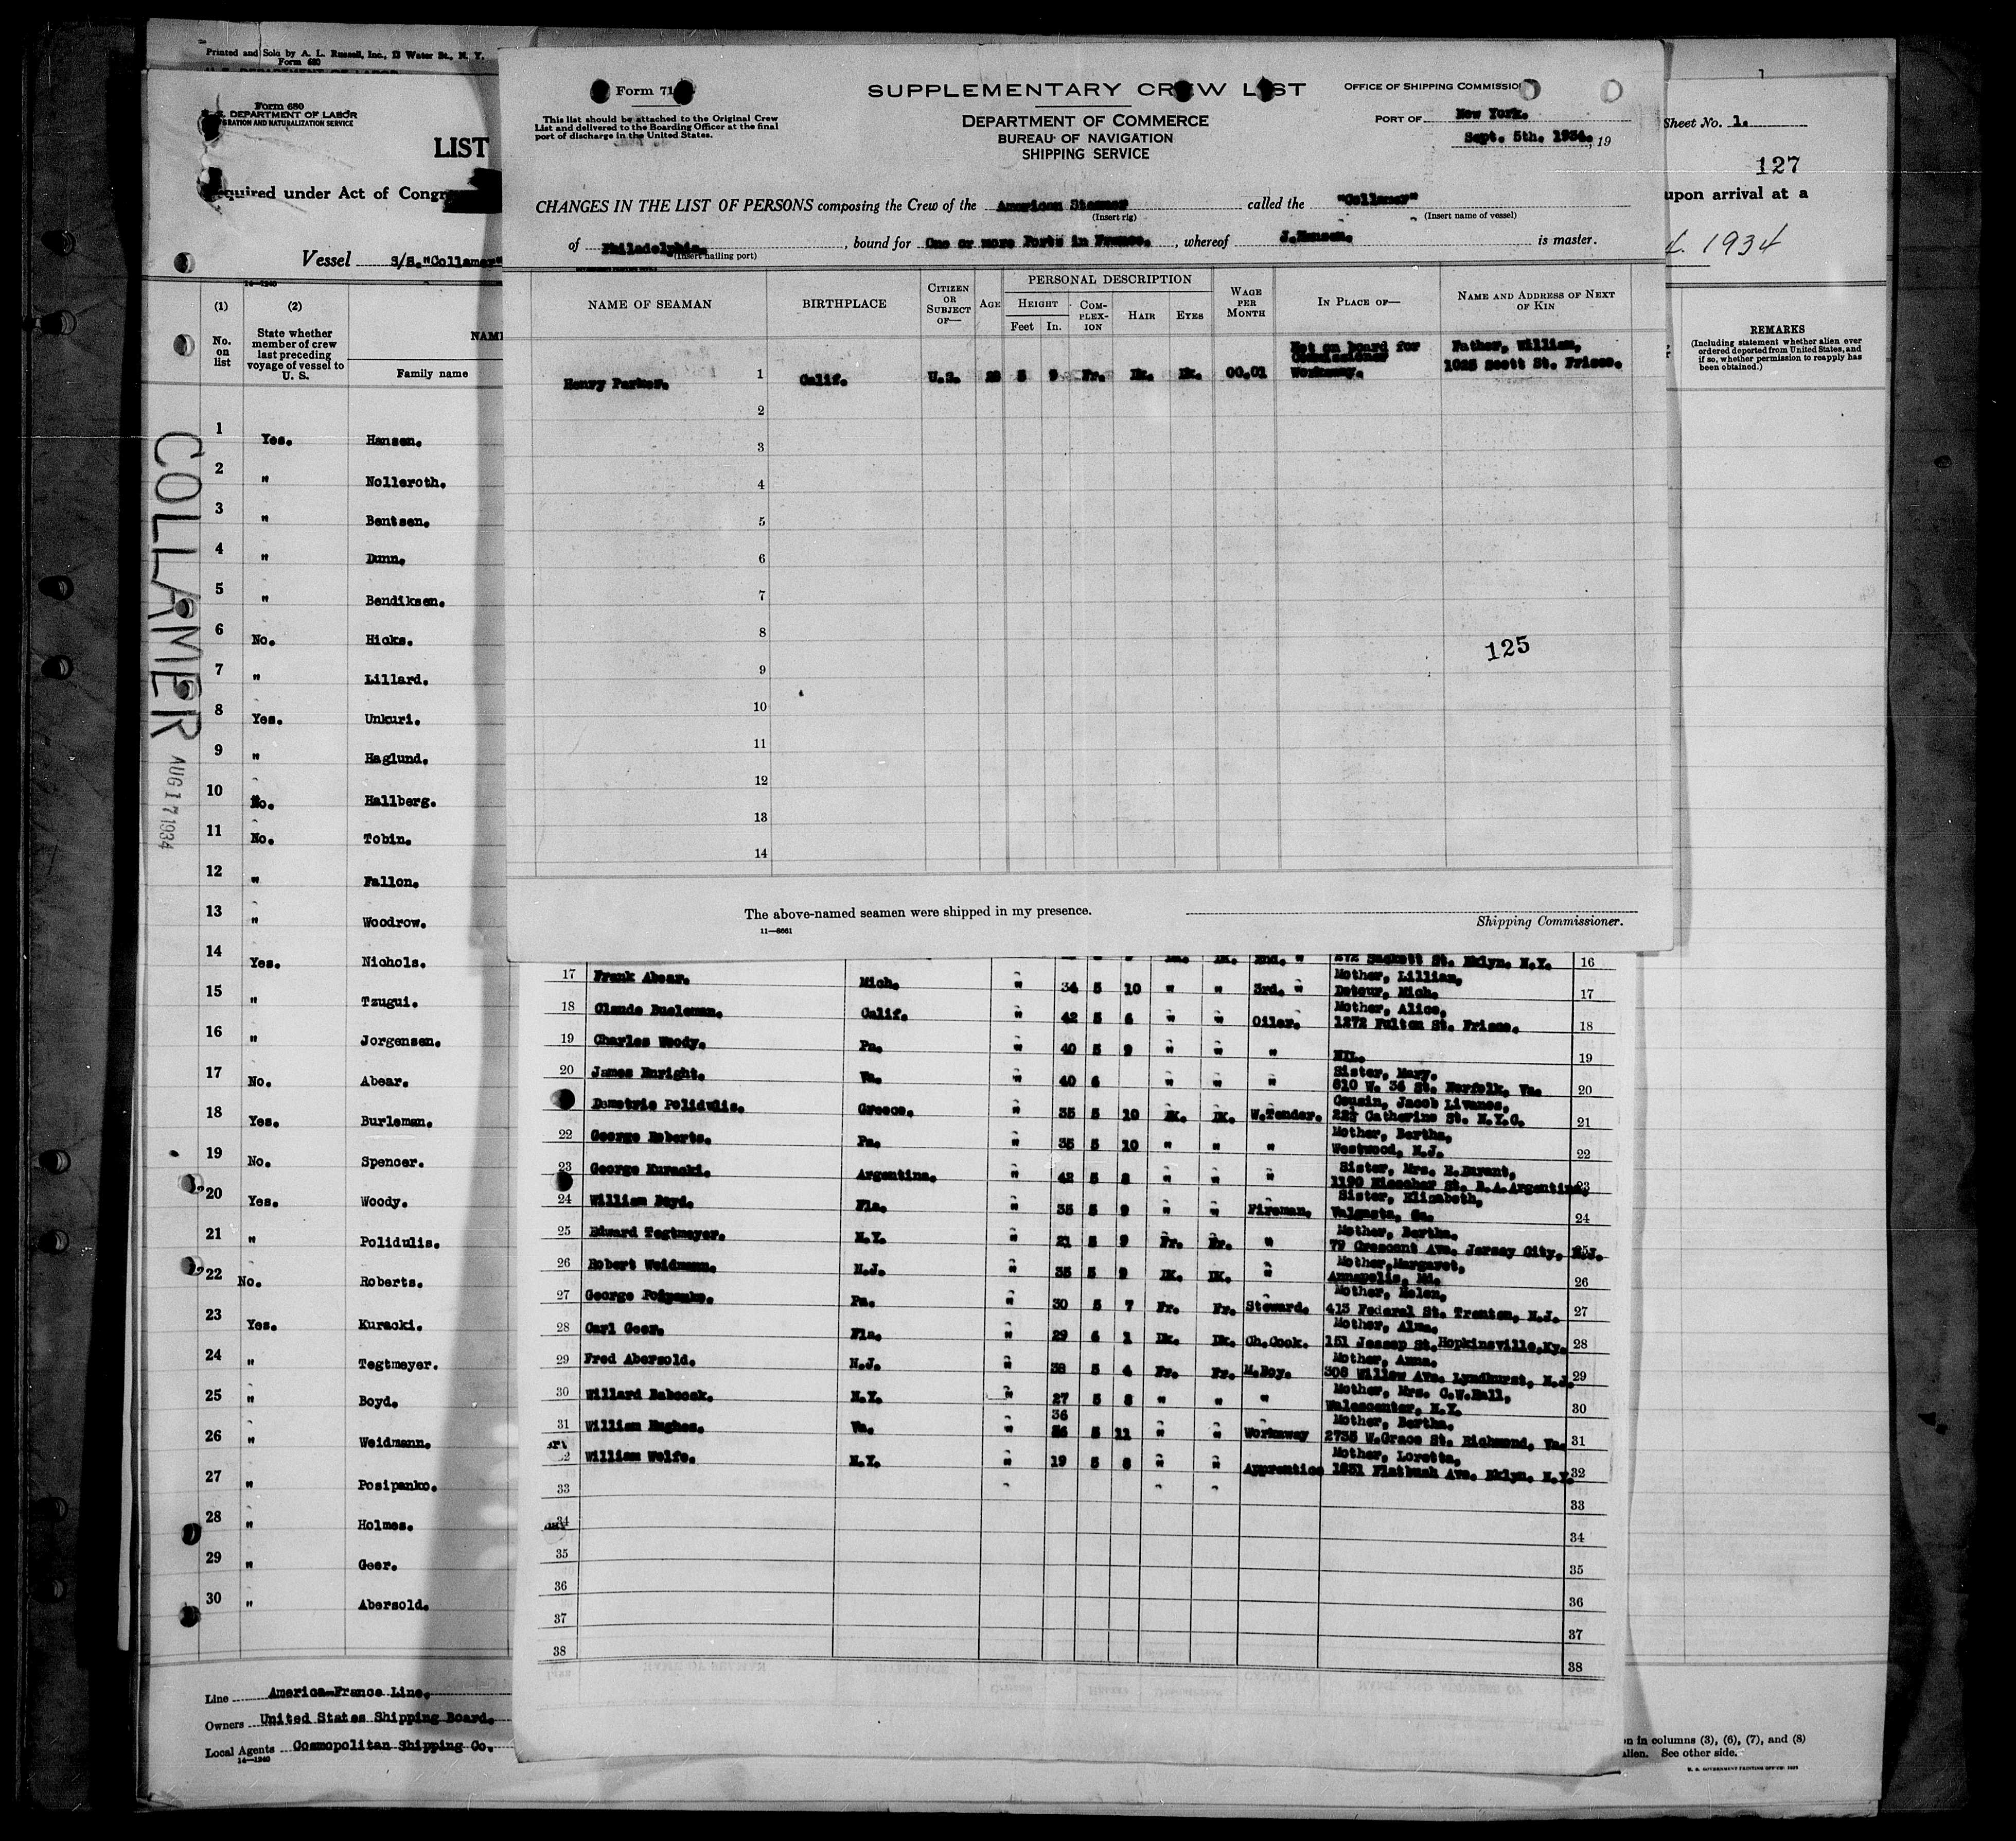 Printed and Sold by A. L. Russell, Inc., 12 Water St., N. Y.
Form 680
Form 680
DEPARTMENT OF LABOR
IMMIGRATION AND NATURALIZATION SERVICE
LIST
required under Act of Congr
Vessel S/S."Collamer"
14—1240
(1) (2)
No. on list
State whether member of crew last preceding voyage of vessel to U. S.
NAM
Family name
1 Yes. Hansen.
2 " Nolleroth.
3 " Bentsen.
4 " Dunn.
5 " Bendiksen.
6 No. Hicks.
7 " Lillard.
8 Yes. Unkuri.
9 " Haglund.
10 No. Hallberg.
11 No. Tobin.
12 " Fallon.
13 " Woodrow.
14 Yes. Nichols.
15 " Tzugui.
16 " Jorgensen.
17 No. Abear.
18 Yes. Burleman.
19 No. Spencer.
20 Yes. Woody.
21 " Polidulis.
22 No. Roberts.
23 Yes. Kuracki.
24 " Tegtmeyer.
25 " Boyd.
26 " Weidmann.
27 " Posipanko.
28 " Holmes.
29 " Geer.
30 " Abersold.
Line America-France Line.
Owners United States Shipping Board.
Local Agents Cosmopolitan Shipping Co.
14—1240
COLLAMER
AUG 17 1934
Form 71
This list should be attached to the Original Crew
List and delivered to the Boarding Officer at the final
port of discharge in the United States.
SUPPLEMENTARY CREW LIST
DEPARTMENT OF COMMERCE
BUREAU OF NAVIGATION
SHIPPING SERVICE
OFFICE OF SHIPPING COMMISSIO
PORT OF New York.
Sept. 5th. 1934., 19
CHANGES IN THE LIST OF PERSONS composing the Crew of the American Steamer called the "Collamer"
(Insert rig) (Insert name of vessel)
of Philadelphia. , bound for One or more Ports in France. , whereof J.Hansen. is master.
(Insert hailing port)
NAME OF SEAMAN BIRTHPLACE CITIZEN OR SUBJECT OF— AGE PERSONAL DESCRIPTION HEIGHT Feet In. COMPLEXION HAIR EYES WAGE PER MONTH IN PLACE OF— NAME AND ADDRESS OF NEXT OF KIN
Henry Parker. 1 Calif. U.S. 5 9 Fr. Dk. Dk. 00.01 Not on board for Commissioner Workaway. Father, William, 1025 Scott St. Frisco.
2
3
4
5
6
7
8
9
10
11
12
13
14
125
The above-named seamen were shipped in my presence.
Shipping Commissioner.
11—8661
272 Sackett St. Bklyn. N.Y. 16
17 Frank Abear. Mich. " 34 5 10 " " 3rd. " Mother, Lillian, Detour, Mich. 17
18 Claude Bueleman. Calif. " 42 5 6 " " Oiler. Mother, Alice, 1272 Fulton St. Frisco. 18
19 Charles Woody. Pa. " 40 5 9 " " " NIL. 19
20 James Enright. Va. " 40 6 " " " Sister, Mary. 810 W. 36 St. Norfolk, Va. 20
Demetrie Polidulis. Greece. " 35 5 10 Dk. Dk. W.Tender. Cousin, Jacob Livanos, Catherine St. N.Y.C. 21
22 George Roberts. Pa. " 35 5 10 " " " Mother, Bertha, Westwood, N.J. 22
23 George Kuracki. Argentina. " 42 5 8 " " " Sister, Mrs. E.Durant, B.A.Argentina. 23
24 William Boyd. Fla. " 35 5 9 " " Fireman. Sister, Elizabeth, Ga. 24
25 Edward Tegtmeyer. N.Y. " 21 5 9 Fr. Fr. " Mother, Bertha. 79 Crescent Ave. Jersey City, N.J.
26 Robert Weidmann. N.J. " 35 5 9 Dk. Dk. " Mother,Margaret, Annapolis, Md. 26
27 George Posipanko. Pa. " 30 5 7 Fr. Fr. Steward. Mother, Helen, 413 Federal St. Trenton, N.J. 27
28 Carl Geer. Fla. " 29 6 1 Dk. Dk. Ch.Cook. Mother, Alma. 151 Jessup St.Hopkinsville,Ky. 28
29 Fred Abersold. N.J. " 38 5 4 Fr. Fr. M.Boy. Mother, Anna. 306 Willow Ave. Lyndhurst, N.J. 29
30 Willard Babcock. N.Y. " 27 5 8 " " " Mother, Mrs. C.W.Ball, Walescenter, N.Y. 30
31 William Hughes. Va. " 36 5 11 " " Workaway Mother, Bertha. 2735 W.Grace St. Richmond, Va. 31
William Wolfe. N.Y. " 19 5 8 " " Apprentice Mother, Loretta, 1831 Flatbush Ave. Bklyn. N.Y. 32
33 33
34 34
35 35
36 36
37 37
38 38
Sheet No. 1.
127
upon arrival at a
1934
REMARKS
(Including statement whether alien ever
ordered deported from United States, and
if so, whether permission to reapply has
been obtained.)
on in columns (3), (6), (7), and (8)
alien. See other side.
U. S. GOVERNMENT PRINTING OFFICE